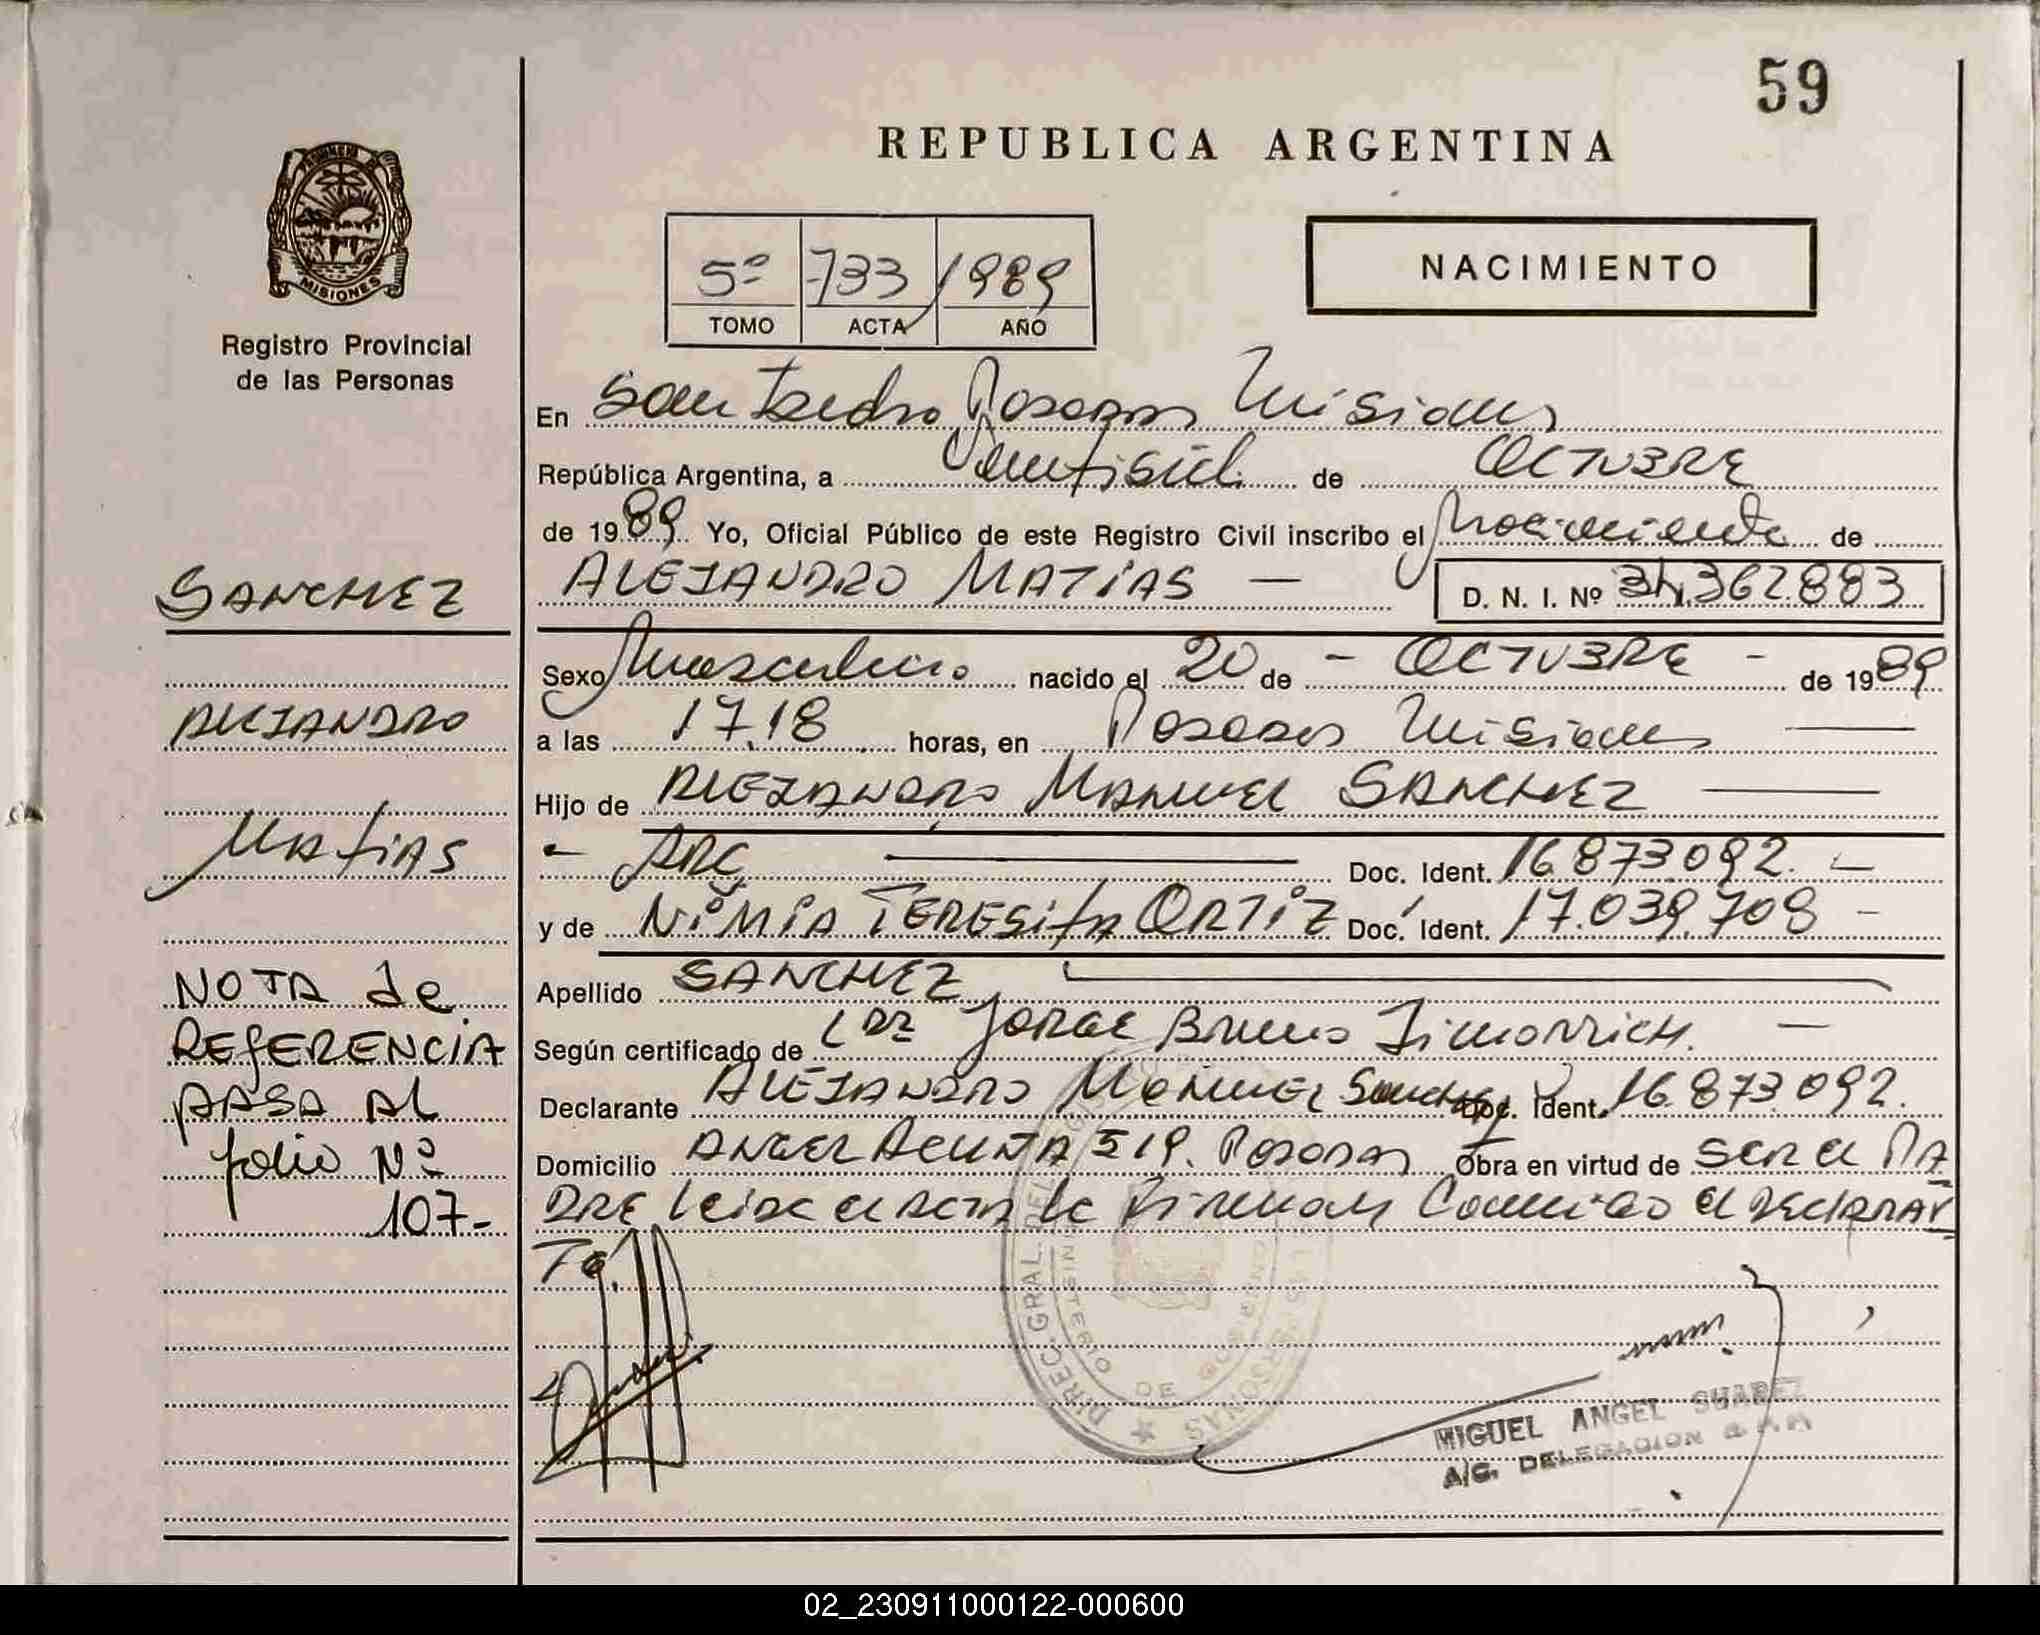 59
REPUBLICA ARGENTINA
PROVINCIA DE
MISIONES
Registro Provincial
de las Personas
5º 733 1989
TOMO ACTA AÑO
NACIMIENTO
En San Isidro Posadas Misiones
República Argentina, a Veintiseis de OCTUBRE
de 1989 Yo, Oficial Público de este Registro Civil inscribo el Nacimiento de
ALEJANDRO MATIAS — D. N. I. Nº 34.362.883
Sexo Masculino nacido el 20 de - OCTUBRE - de 1989
a las 17.18 horas, en Posadas Misiones
Hijo de ALEJANDRO MANUEL SANCHEZ
- ARG Doc. Ident. 16.873.092. —
y de NIMIA TERESITA ORTIZ Doc. Ident. 17.039.708 -
Apellido SANCHEZ
Según certificado de DR JORGE Bruno —
Declarante ALEJANDRO MANUEL Sanchez Doc. Ident. 16.873.092.
Domicilio ANGEL ACUÑA 519. Posadas Obra en virtud de SER el PA
DRE Leida el Acta la Firman Conmigo el DECLARAN
TE.
SANCHEZ
ALEJANDRO
MATIAS
NOTA de
REFERENCIA
PASA AL
folio Nº
107-
DIREC. GRAL. DEL PERSONAS
MINISTERIO DE GOBIERNO
MIGUEL ANGEL SUAREZ
A/C. DELEGACION
02_230911000122-000600